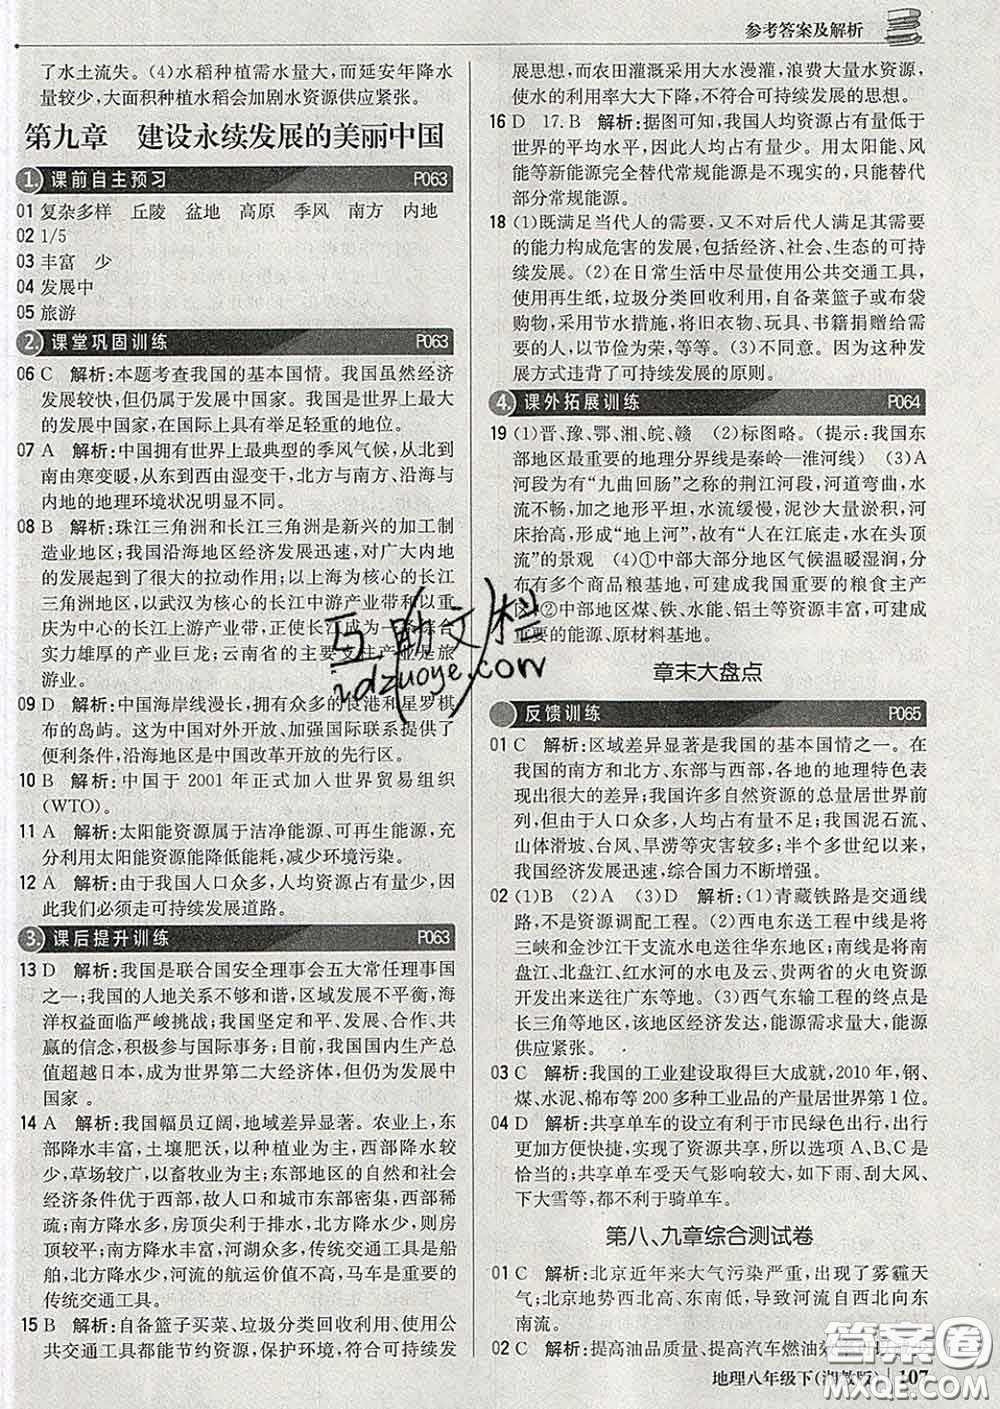 参考答案及解析
了水土流失。(4)水稻种植需水量大,而延安年降水
量较少,大面积种植水稻会加剧水资源供应紧张。
第九章 建设永续发展的美丽中国
1. 课前自主预习 P063
01 复杂多样 丘陵 盆地 高原 季风 南方 内地
02 1/5
03 丰富 少
04 发展中
05 旅游
2. 课堂巩固训练 P063
06 C 解析:本题考查我国的基本国情。我国虽然经济
发展较快,但仍属于发展中国家。我国是世界上最大
的发展中国家,在国际上具有举足轻重的地位。
07 A 解析:中国拥有世界上最典型的季风气候,从北到
南由寒变暖,从东到西由湿变干,北方与南方、沿海与
内地的地理环境状况明显不同。
08 B 解析:珠江三角洲和长江三角洲是新兴的加工制
造业地区;我国沿海地区经济发展迅速,对广大内地
的发展起到了很大的拉动作用;以上海为核心的长江
三角洲地区,以武汉为核心的长江中游产业带和以重
庆为中心的长江上游产业带,正使长江成为一条综合
实力雄厚的产业巨龙;云南省的主要支柱产业是旅
游业。
09 D 解析:中国海岸线漫长,拥有众多的良港和星罗棋
布的岛屿。这为中国对外开放、加强国际联系提供了
便利条件,沿海地区是中国改革开放的先行区。
10 B 解析:中国于 2001 年正式加入世界贸易组织
(WTO)。
11 A 解析:太阳能资源属于洁净能源、可再生能源,充
分利用太阳能资源能降低能耗,减少环境污染。
12 A 解析:由于我国人口众多,人均资源占有量少,因
此我们必须走可持续发展道路。
3. 课后提升训练 P063
13 D 解析:我国是联合国安全理事会五大常任理事国
之一;我国的人地关系不够和谐,区域发展不平衡,海
洋权益面临严峻挑战;我国坚定和平、发展、合作、共
赢的信念,积极参与国际事务;目前,我国国内生产总
值超越日本,成为世界第二大经济体,但仍为发展中
国家。
14 A 解析:我国幅员辽阔,地域差异显著。农业上,东
部降水丰富,土壤肥沃,以种植业为主,西部降水较
少,草场较广,以畜牧业为主;东部地区的自然和社会
经济条件优于西部,故人口和城市东部密集,西部稀
疏;南方降水多,房顶坡度大,利于排水,北方降水少,
屋顶坡度小;南方降水丰富,河湖众多,传统交通工具是船
舶,北方降水少,河流的航运价值不高,马车是重要的
传统交通工具。
15 B 解析:自备篮子买菜、垃圾分类回收利用、使用公
共交通工具都能节约资源,保护环境,符合可持续发
展思想,而农田灌溉采用大水漫灌,浪费大量水资源,
使水的利用率大大下降,不符合可持续发展的思想。
16 D 17. B 解析:据图可知,我国人均资源占有量低于
世界的平均水平,森林人均占有量最少。用太阳能、风
能等新能源完全替代常规能源是不现实的,只能替代
部分常规能源。
18 (1)既满足当代人的需要,又不对后代人满足其需要
的能力构成危害的发展,包括经济、社会、生态的可持
续发展。(2)在日常生活中尽量使用公共交通工具,
使用再生纸,垃圾分类回收利用,自备菜篮子或布袋
购物,采用节水措施,将旧衣物、玩具、书籍捐赠给需
要的人,以节俭为荣,等等。(3)不同意。因为这种发
展方式违背了可持续发展的原则。
4. 课外拓展训练 P064
19 (1)晋、豫、鄂、湘、皖、赣 (2)标图略。(提示:我国东
部地区最重要的地理分界线是秦岭—淮河线) (3)A
河段为有“九曲回肠”之称的荆江河段,河道弯曲,水
流不畅,加之地形平坦,水流缓慢,泥沙大量沉积,河
床抬高,形成“地上河”,故有“人在江底走,水在头顶
流”的景观 (4)①中部大部分地区气候温暖湿润,
分布有多个商品粮基地,可建成我国重要的粮食主产
区;②中部地区煤、铁、水能、铝土等资源丰富,可建成
重要的能源、原材料基地。
章末大盘点
反馈训练 P065
01 C 解析:区域差异显著是我国的基本国情之一。在
我国的南方和北方、东部与西部,各地的地理特色表
现出很大的差异;我国许多自然资源的总量居世界前
列,但由于人口众多,人均占有量少;我国泥石流、
山体滑坡、台风、旱涝等灾害较多;半个多世纪以来,
我国经济发展迅速,综合国力不断增强。
02 (1)B (2)A (3)D 解析:(1)青藏铁路是交通线
路,不是资源调配工程。(2)西电东送工程中线是将
三峡和金沙江干支流水电送往华东地区;南线是将南
盘江、北盘江、红水河的水电及云、贵两省的火电资源
开发出来送往广东等地。(3)西气东输工程的终点是
长三角等地区,该地区经济发达,能源需求量大,能源
供应紧张。
03 C 解析:我国的工业建设取得巨大成就,2010 年,钢、
煤、水泥、棉布等 200 多种工业品的产量居世界第 1 位。
04 D 解析:共享单车的设立有利于市民绿色出行,出行
更加方便快捷,实现了资源共享,所以选项 A、B、C 是
恰当的;共享单车受天气影响较大,如下雨、刮大风、
下大雪等,都不利于骑单车。
第八、九章综合测试卷
01 C 解析:北京近年来大气污染严重,出现了雾霾天
气;北京地势西北高、东南低,导致河流自西北向东
南流。
02 C 解析:提高油品质量、提高汽车燃油效
地理八年级下(湘教版) 107
互助文档
hdzuoye.com
答案圈
MXQE.COM